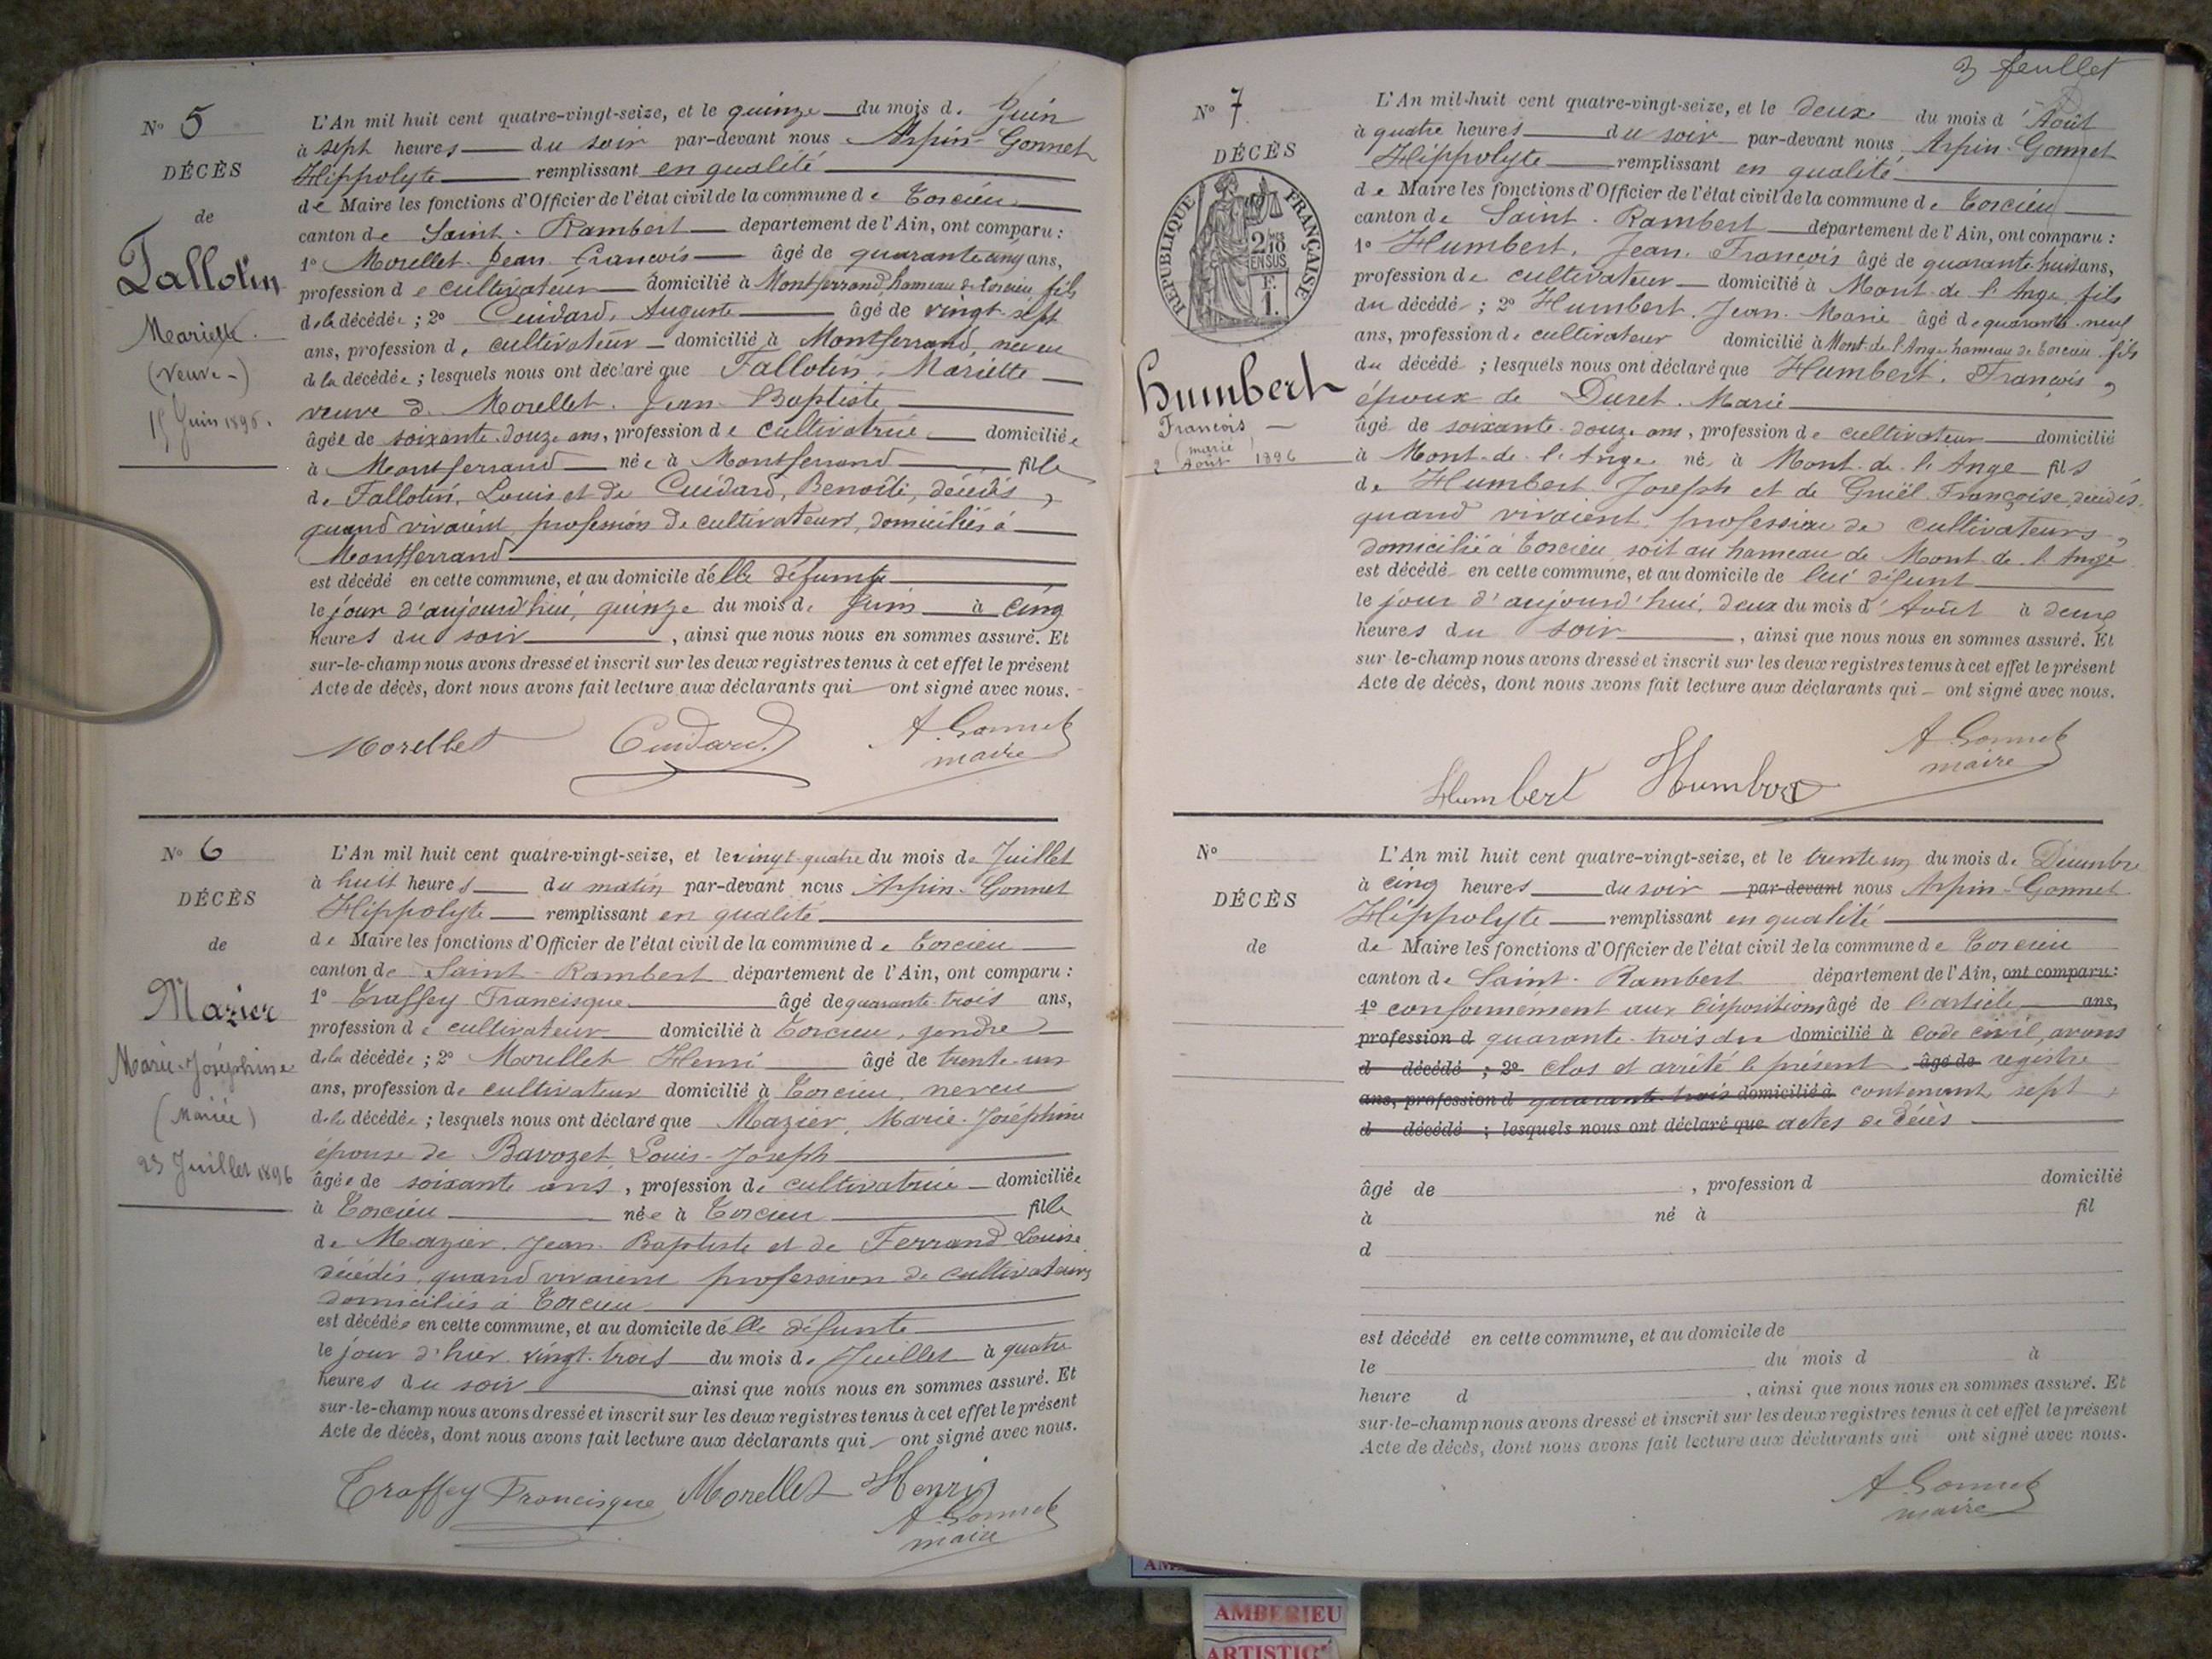 N° 5
DÉCÈS
de
Fallotin
Mariette
(Veuve)
15 Juin 1896.
L'An mil huit cent quatre-vingt-seize, et le quinze du mois de Juin
à sept heures du soir par-devant nous Arpin-Gonnet
Hippolyte remplissant en qualité
de Maire les fonctions d'Officier de l'état civil de la commune de Torcieu
canton de Saint-Rambert département de l'Ain, ont comparu :
1° Morellet Jean François âgé de quarante cinq ans,
profession de cultivateur domicilié à Montferrand, hameau de Torcieu, fils
de la décédée ; 2° Cuidard, Auguste âgé de vingt-sept
ans, profession de cultivateur domicilié à Montferrand, neveu
de la décédée ; lesquels nous ont déclaré que Fallotin, Mariette
veuve de Morellet Jean Baptiste
âgée de soixante-douze ans, profession de cultivatrice domiciliée
à Montferrand née à Montferrand fille
de Fallotin, Louis et de Cuidard, Benoîte, décédés,
quand vivaient profession de cultivateurs, domiciliés à
Montferrand
est décédé en cette commune, et au domicile d'elle défunte
le jour d'aujourd'hui, quinze du mois de Juin à cinq
heures du soir, ainsi que nous nous en sommes assuré. Et
sur-le-champ nous avons dressé et inscrit sur les deux registres tenus à cet effet le présent
Acte de décès, dont nous avons fait lecture aux déclarants qui ont signé avec nous.
Morellet Cuidard A. Gonnet
maire
N° 6
DÉCÈS
de
Mazier
Marie-Joséphine
(Mariée)
23 Juillet 1896
L'An mil huit cent quatre-vingt-seize, et le vingt-quatre du mois de Juillet
à huit heures du matin par-devant nous Arpin-Gonnet
Hippolyte remplissant en qualité
de Maire les fonctions d'Officier de l'état civil de la commune de Torcieu
canton de Saint-Rambert département de l'Ain, ont comparu :
1° Traffey Francisque âgé de quarante-trois ans,
profession de cultivateur domicilié à Torcieu, gendre
de la décédée ; 2° Morellet Henri âgé de trente-un
ans, profession de cultivateur domicilié à Torcieu, neveu
de la décédée ; lesquels nous ont déclaré que Mazier, Marie-Joséphine
épouse de Bavozet, Louis-Joseph
âgée de soixante ans, profession de cultivatrice domiciliée
à Torcieu née à Torcieu fille
de Mazier Jean-Baptiste et de Ferrand Louise
décédés, quand vivaient profession de cultivateurs
domiciliés à Torcieu
est décédée en cette commune, et au domicile d'elle défunte
le jour d'hier vingt-trois du mois de Juillet à quatre
heures du soir ainsi que nous nous en sommes assuré. Et
sur-le-champ nous avons dressé et inscrit sur les deux registres tenus à cet effet le présent
Acte de décès, dont nous avons fait lecture aux déclarants qui ont signé avec nous.
Traffey Francisque Morellet Henri
A. Gonnet
maire
3 feuillet
N° 7
DÉCÈS
RÉPUBLIQUE FRANÇAISE
2/10MES
EN SUS
F.
1.
Humbert
François
(marié)
2 Août 1896
L'An mil-huit cent quatre-vingt-seize, et le deux du mois d'Août
à quatre heures du soir par-devant nous Arpin-Gonnet
Hippolyte remplissant en qualité
de Maire les fonctions d'Officier de l'état civil de la commune de Torcieu
canton de Saint-Rambert département de l'Ain, ont comparu :
1° Humbert, Jean-François âgé de quarante-huit ans,
profession de cultivateur domicilié à Mont-de-l'Ange fils
du décédé ; 2° Humbert Jean-Marie âgé de quarante-neuf
ans, profession de cultivateur domicilié à Mont-de-l'Ange hameau de Torcieu fils
du décédé ; lesquels nous ont déclaré que Humbert, François,
époux de Duret Marie
âgé de soixante-douze ans, profession de cultivateur domicilié
à Mont-de-l'Ange né à Mont-de-l'Ange fils
de Humbert Joseph et de Françoise, décédés,
quand vivaient profession de cultivateurs,
domicilié à Torcieu soit au hameau de Mont-de-l'Ange
est décédé en cette commune, et au domicile de lui défunt
le jour d'aujourd'hui, deux du mois d'Août à deux
heures du soir, ainsi que nous nous en sommes assuré. Et
sur-le-champ nous avons dressé et inscrit sur les deux registres tenus à cet effet le présent
Acte de décès, dont nous avons fait lecture aux déclarants qui ont signé avec nous.
A. Gonnet
maire
Humbert Humbert
N°
DÉCÈS
de
L'An mil huit cent quatre-vingt-seize, et le trente un du mois de Décembre
à cinq heures du soir par-devant nous Arpin-Gonnet
Hippolyte remplissant en qualité
de Maire les fonctions d'Officier de l'état civil de la commune de Torcieu
canton de Saint-Rambert département de l'Ain, ont comparu :
1° conformément aux dispositions âgé de l'article ans,
profession d quarante-trois du domicilié à code civil, avons
d décédé ; 2° clos et arrêté le présent âgé de registre
ans, profession d quarante trois domicilié à contenant sept
d décédé ; lesquels nous ont déclaré que actes de décès
âgé de , profession d domicilié
à né à fil
d
est décédé en cette commune, et au domicile de
le du mois d à
heure d , ainsi que nous nous en sommes assuré. Et
sur-le-champ nous avons dressé et inscrit sur les deux registres tenus à cet effet le présent
Acte de décès, dont nous avons fait lecture aux déclarants qui ont signé avec nous.
A. Gonnet
maire
AMBERIEU
ARTISTIC